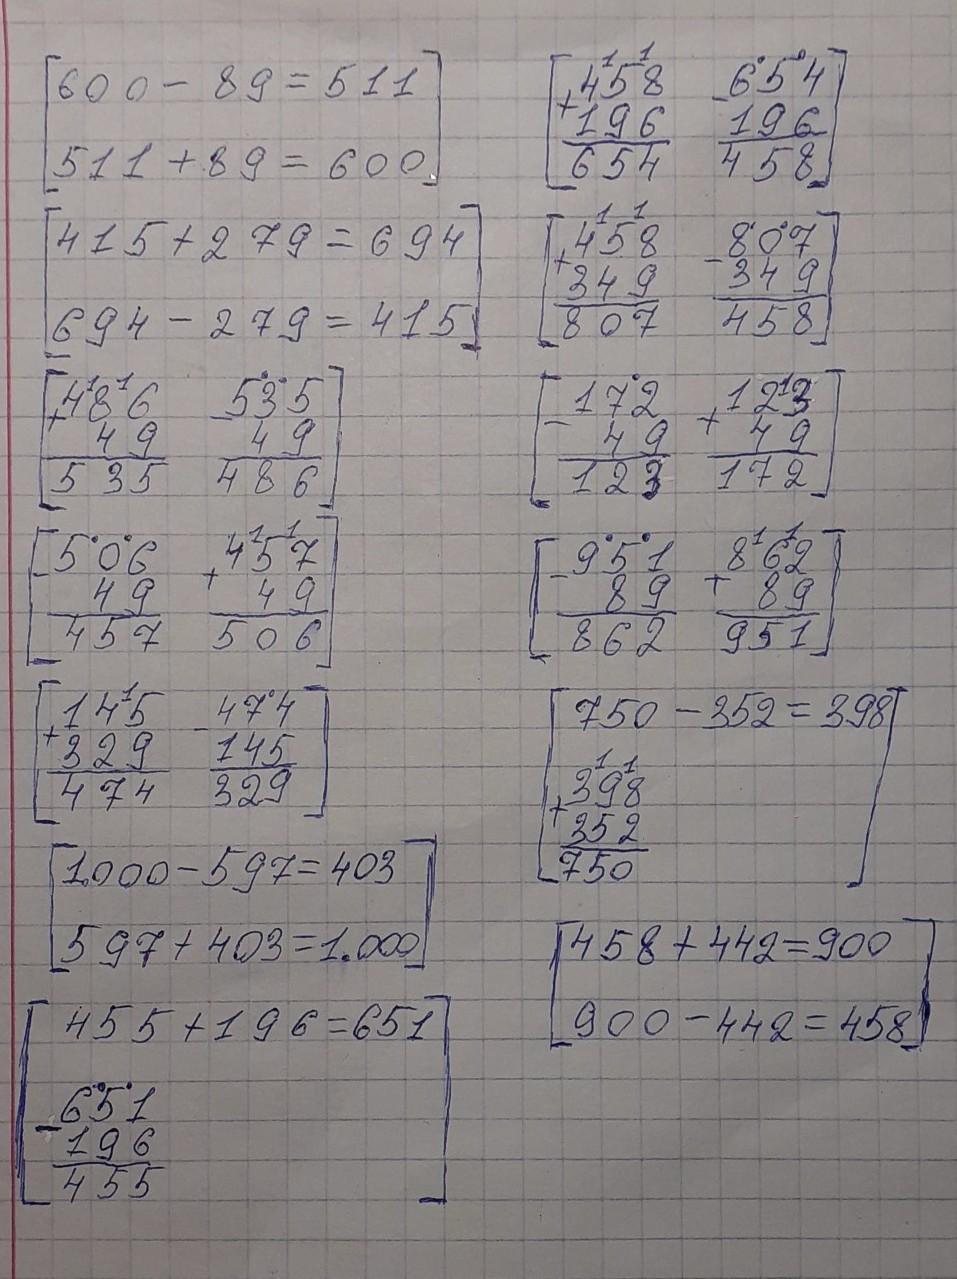 600 - 89 = 511
511 + 89 = 600
415 + 279 = 694
694 - 279 = 415
1 1
+486
49
535
-535
49
486
-506
49
457
1 1
+457
49
506
1
+145
329
474
-474
145
329
1.000 - 597 = 403
597 + 403 = 1.000
455 + 196 = 651
-651
196
455
1 1
+458
196
654
-654
196
458
1 1
+458
349
807
-807
349
458
-172
49
123
1
+123
49
172
-951
89
862
1 1
+862
89
951
750 - 352 = 398
1 1
+398
352
750
458 + 442 = 900
900 - 442 = 458